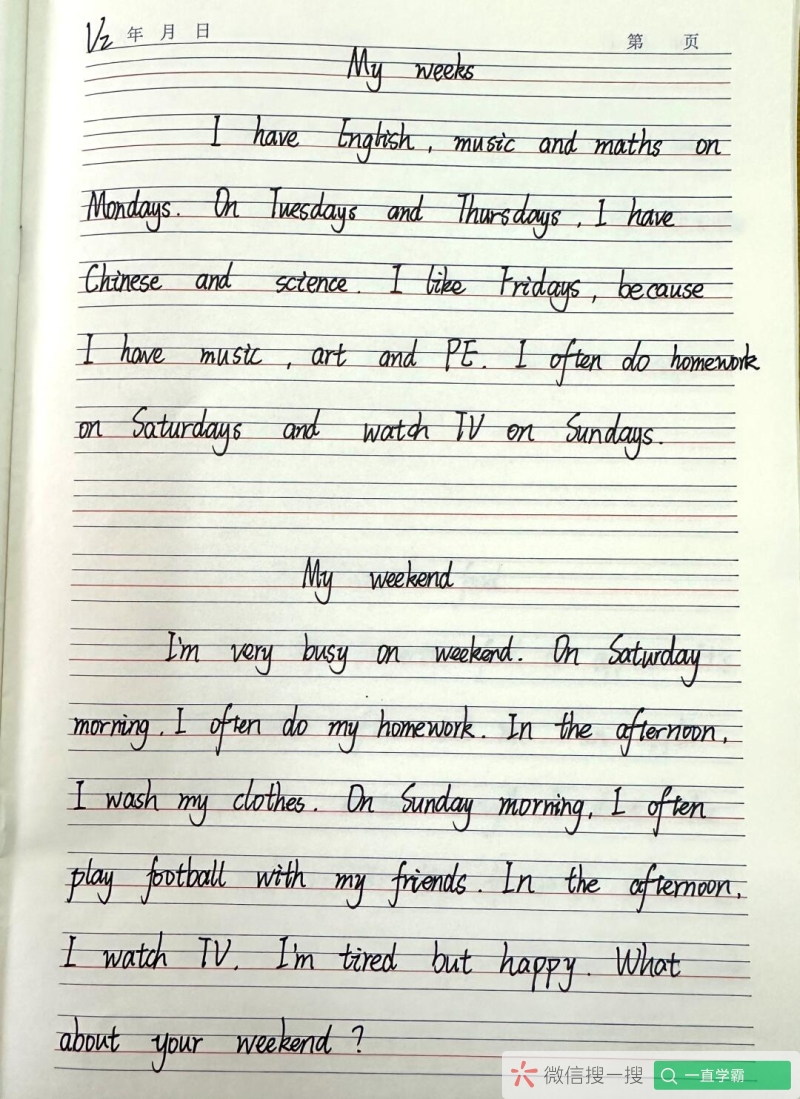 V2 年 月 日
第 页
My weeks
I have English, music and maths on
Mondays. On Tuesdays and Thursdays, I have
Chinese and science. I like Fridays, because
I have music, art and PE. I often do homework
on Saturdays and watch TV on Sundays.
My weekend
I'm very busy on weekend. On Saturday
morning, I often do my homework. In the afternoon,
I wash my clothes. On Sunday morning, I often
play football with my friends. In the afternoon,
I watch TV. I'm tired but happy. What
about your weekend?
微信搜一搜 一直学霸